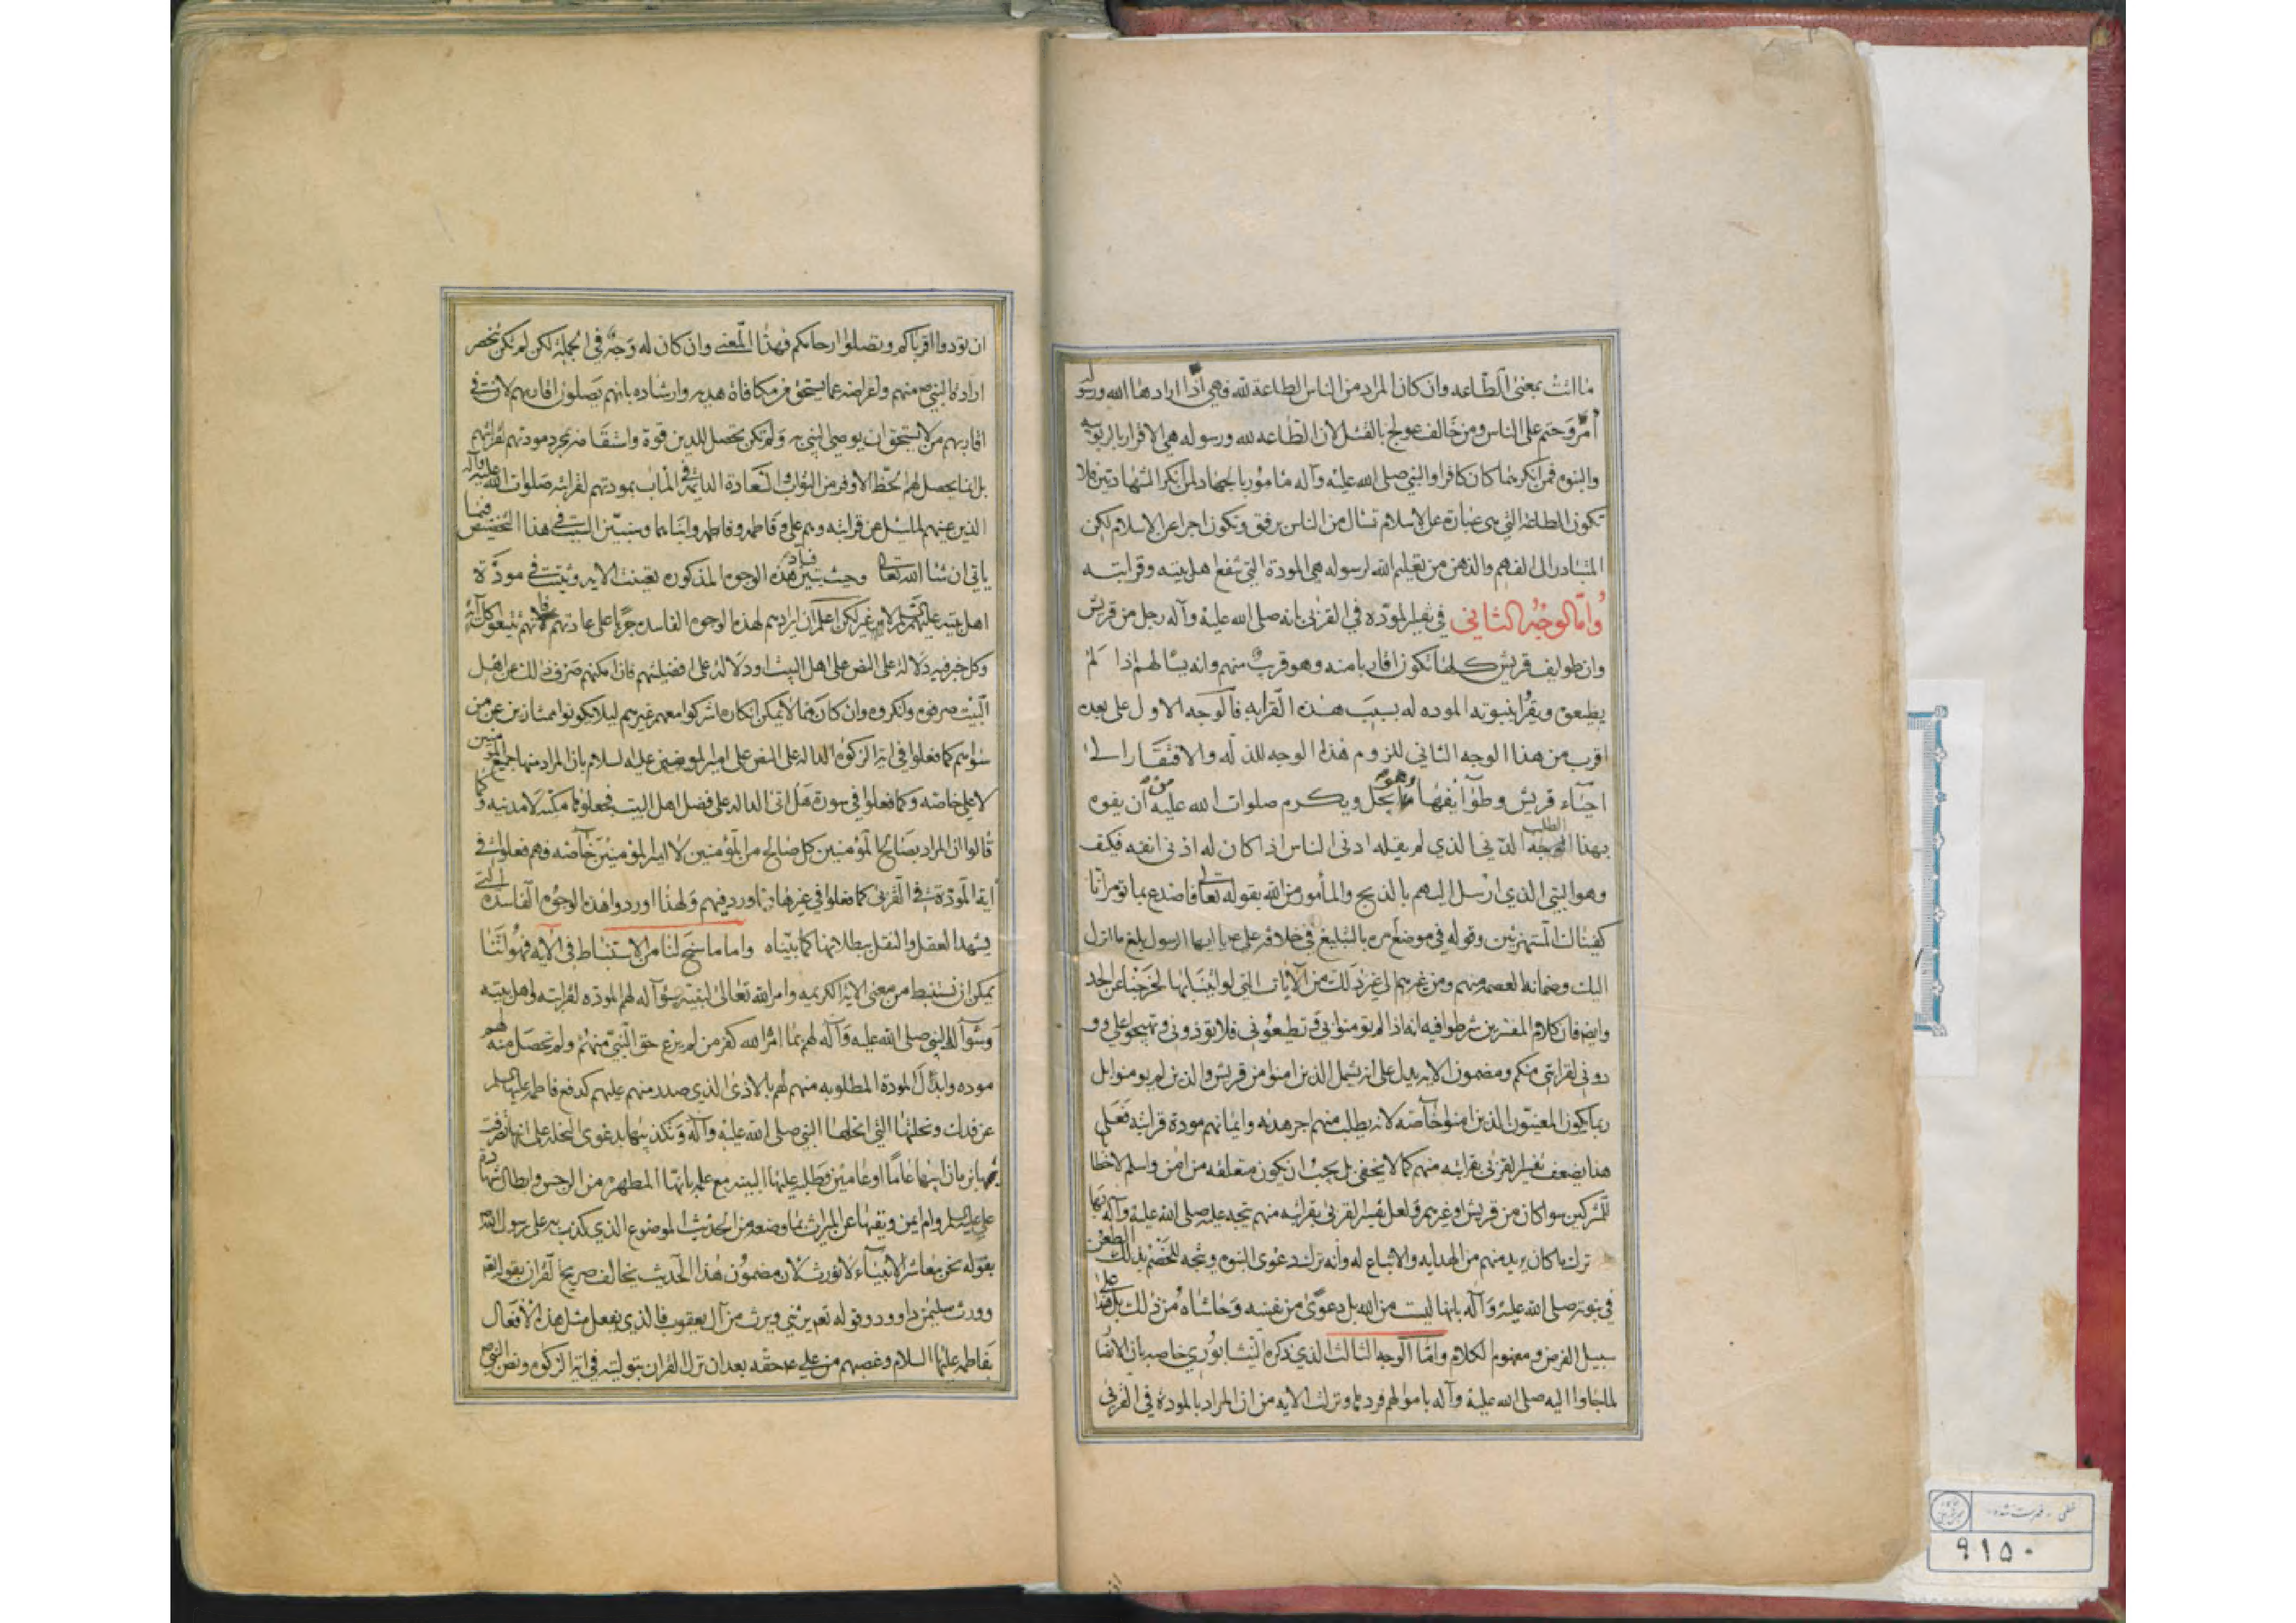 ما انث بمعنى الطاعه وان كان المراد من الناس الطاعة لله فهي اذا ارادها الله ورسوله
امر وحتم على الناس ومن خالف عولج بالقتل لان الطاعه لله ورسوله هي الاقرار بالربوبيه
والنبوه فمن انكرهما كان كافرا والنبي صلى الله عليه وآله مامور بالجهاد لمن انكر الشهادتين فلا
تكون الطاعة التي هي عبارة عن الاسلام تسال من الناس برفق وتكون اجرا عن الاسلام لكن
المتبادر الى الفهم والذهن من تعليم الله لرسوله هي المودة التي تنفع اهل بيته وقرابته
واما الوجه الثاني في تفسير المودّه في القربى بانه صلى الله عليه وآله رجل من قريش
وان طوايف قريش كلها تكون اقاربا منه وهو قرب منهم وانه يسالهم اذا لم
يطيعوه ويقرا بنبوته الموده له بسبب هذه القرابه فالوجه الاول على بعده
اقرب من هذا الوجه الثاني للزوم هذا الوجه للذله والافتقار الى
احياء قريش وطوايفها وهو يجل ويكرم صلوات الله عليه من ان يفوه
بهذا الطلب الدني الذي لم يقله ادنى الناس اذا كان له ادنى انفه فكيف
وهو النبي الذي ارسل اليهم بالذبح والمأمور من الله بقوله تعالى فاصدع بما تومر انا
كفيناك المستهزئين وقوله في موضع امره بالتبليغ في خلافة علي يا ايها الرسول بلغ ما انزل
اليك وضمانه لعصمه منهم ومن غيرهم الى غير ذلك من الآيات التي لو اتينا بها لخرجنا عن الحد
وايضا فان كلام المفسرين شرطوا فيه انه اذا لم تومنوا بي وتطيعوني فلا تؤذوني وتهيجوا علي وو
دوني لقرابتي منكم ومضمون الايه يدل على انه يشمل الذين امنوا من قريش والذين لم يومنوا بل
ربما يكون المعنيون الذين امنوا خاصه لانه يطلب منهم اجر هديه وايمانهم مودة قرابته فعلى
هذا يضعف تفسير القربى بقرابته منهم كما لا يخفى بل يجب ان يكون متعلقه من امن واسلم لا خطابا
للمشركين سوا كان من قريش او غيرهم ولعل تفسير القربى بقرابته منهم تجه عليه صلى الله عليه وآله بها
ترك ما كان يريد منهم من الهدايه والاتباع له وانه ترك دعوى النبوه ويتجه للخصم بذلك الطعن
في نبوته صلى الله عليه وآله بانها ليست من الله بل دعوى من نفسه وحاشاه من ذلك بل هذا على
سبيل الفرض ومفهوم الكلام واما الوجه الثالث الذي ذكره النيشابوري خاصه بان الانصار
لما جاوا اليه صلى الله عليه وآله باموالهم فردها ونزلت الايه من ان المراد بالمودة في القربى
ان تودوا اقرباكم وتصلوا ارحامكم فهذا المعنى وان كان له وجه في الجملة لكن لم تكن تنحصر
ارادة النبي منهم واغراضه عما يستحق من مكافاة هديه وارشاده بانهم يصلون اقاربهم لانت في
اقاربهم من لا يستحق ان يوصي النبي به ولم تكن تحصل للدين قوة بمجرد مودتهم لقرابتهم
بل انما يحصل لهم الحظ الاوفر من الثواب والسعادة الدائمة في المآب بمودتهم لقرابته صلوات الله عليه وآله
الذين عينهم لما سئل عن قرابته وهم علي وفاطمه وابناهما وسنبين السبب في هذا التخصيص فيما
ياتي ان شا الله تعالى وحيث تبين فساد هذه الوجوه المذكوره تعينت الايه وثبتت في مودة
اهل بيته عليهم السلام لا غير لكن اعلم ان ايرادهم لهذه الوجوه الفاسده جريا على عادتهم فانهم تتبعوا كل آية
وكل خبر فيه دلالة على النص على اهل البيت او دلالة على افضليتهم فان امكنهم صرف ذلك عن اهل
البيت صرفوه وانكروه وان كان مما لا يمكن انكاره اشركوا معهم غيرهم ليلا يكونوا ممتازين عن من
سواهم كما فعلوا في اية الزكوه الداله على النص على امير المومنين عليه السلام بان المراد منها جميع المومنين
لا علي خاصه وكما فعلوا في سورة هل اتى الداله على فضل اهل البيت فجعلوها مكيه لا مدنيه وكما
قالوا ان المراد بصالح المؤمنين كل صالح من المؤمنين لا امير المؤمنين خاصه فهم فعلوا في
اية المودة في القربى كما فعلوا في غيرها مما ورد فيهم ولهذا اوردوا هذه الوجوه الفاسده التي
يشهد العقل والنقل ببطلانها كما بيناه واما ما سنح لنا من الاستنباط في الآيه فهو اننا
يمكن ان نستنبط من معنى الآية الكريمه وامر الله تعالى لنبيه سؤاله لهم المودة لقرابته واهل بيته
وسوال النبي صلى الله عليه وآله لهم بما امر الله كفر من لم يرع حق النبي منهم ولم تحصل منه لهم
موده وابدال المودة المطلوبه منهم لهم بالاذى الذي صدر منهم عليهم كدفع فاطمه عليها السلم
عن فدك ونحلتها التي انحلها النبي صلى الله عليه وآله وتكذيبها بدعوى النحلة على انها تصرفت
بها بزمان ابيها عاما او عامين وطلبه عليها البينه مع علمه بانها المطهره من الرجس وابطال شهادة
علي عليه السلم وام ايمن ودفعها عن الميراث بما وضعه من الحديث الموضوع الذي كذب به على رسول الله
بقوله نحن معاشر الانبياء لا نورث لان مضمون هذا الحديث يخالف صريح القران بقوله تعالى
وورث سليمان داوود وقوله تعالى يرثني ويرث من آل يعقوب فالذي يفعل مثل هذه الافعال
بفاطمه عليها السلام وغصبهم من علي ع حقه بعد ان نزل القران بتوليته في اية الزكوه ونص النبي ص
خطی - فهرست شده
۹۱۵۰